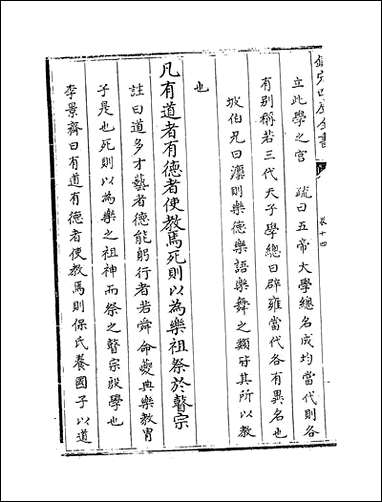 欽定四庫全書
卷十四
立此學之宫 疏曰五帝大學總名成均當代則各
有别稱若三代天子學總曰辟雍當代各有異名也
伯凡曰灋則樂德樂語樂舞之類其所以教
也
凡有道者有德者使教焉死則以為樂祖祭於瞽宗
註曰道多才藝者德能躬行者若舜命夔典樂教胄
子是也死則以為樂之祖神而祭之瞽宗殷學也
李景齊曰有道有德者使教焉則保氏養國子以道